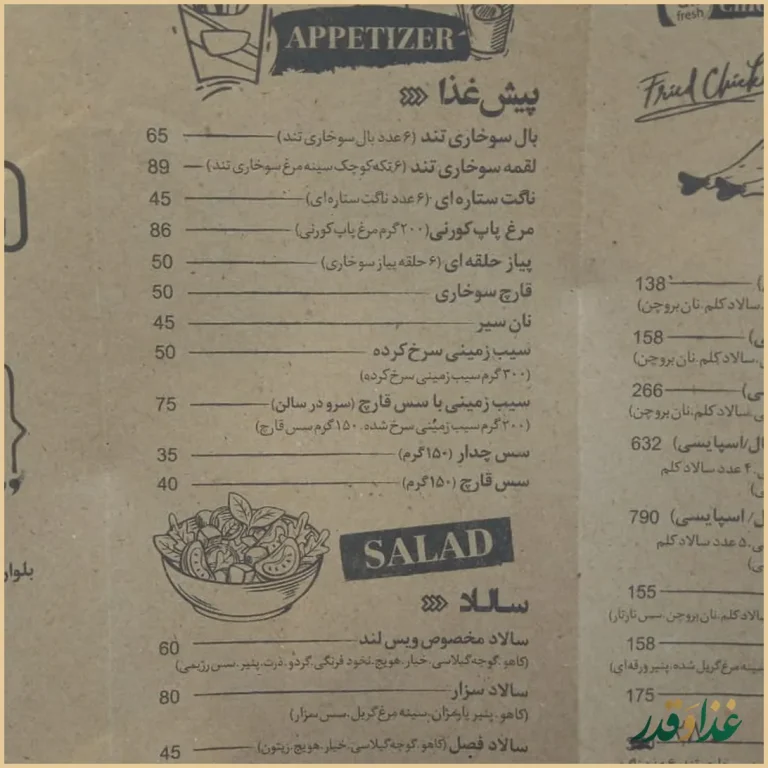 APPETIZER
پیش غذا
بال سوخاری تند (۶ عدد بال سوخاری تند) 65
لقمه سوخاری تند (۶ تکه کوچک سینه مرغ سوخاری تند) 89
ناگت ستاره ای (۶ عدد ناگت ستاره ای) 45
مرغ پاپ کورنی (۲۰۰ گرم مرغ پاپ کورنی) 86
پیاز حلقه ای (۶ حلقه پیاز سوخاری) 50
قارچ سوخاری 50
نان سیر 45
سیب زمینی سرخ کرده 50
(۳۰۰ گرم سیب زمینی سرخ کرده)
سیب زمینی با سس قارچ (سرو در سالن) 75
(۲۰۰ گرم سیب زمینی سرخ شده، ۱۵۰ گرم سس قارچ)
سس چدار (۱۵۰ گرم) 35
سس قارچ (۱۵۰ گرم) 40
SALAD
سالاد
سالاد مخصوص ویس لند 60
(کاهو، گوجه گیلاسی، خیار، هویج، نخود فرنگی، گردو، ذرت، پنیر، سس رژیمی)
سالاد سزار 80
(کاهو، پنیر پارمزان، سینه مرغ گریل، سس سزار)
سالاد فصل (کاهو، گوجه گیلاسی، خیار، هویج، زیتون) 45
fresh
Fried Chick
138
سالاد کلم، نان بروچن)
158
سالاد کلم، نان بروچن)
266
سالاد کلم، نان بروچن)
ال/اسپایسی) 632
۴ عدد سالاد کلم
ل/ اسپایسی) 790
۵ عدد سالاد کلم
155
سالاد کلم، نان بروچن، سس تارتار)
158
سینه مرغ گریل شده، پنیر ورقه ای)
175
بلوار
غذا و قدر